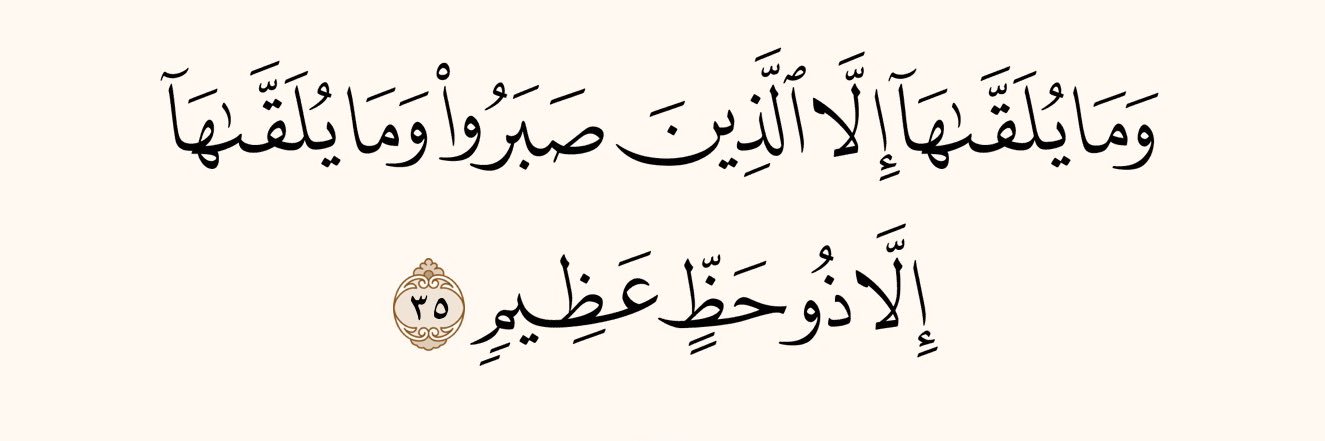 وَمَا يُلَقَّىٰهَآ إِلَّا ٱلَّذِينَ صَبَرُوا۟ وَمَا يُلَقَّىٰهَآ
إِلَّا ذُو حَظٍّ عَظِيمٍ ٣٥